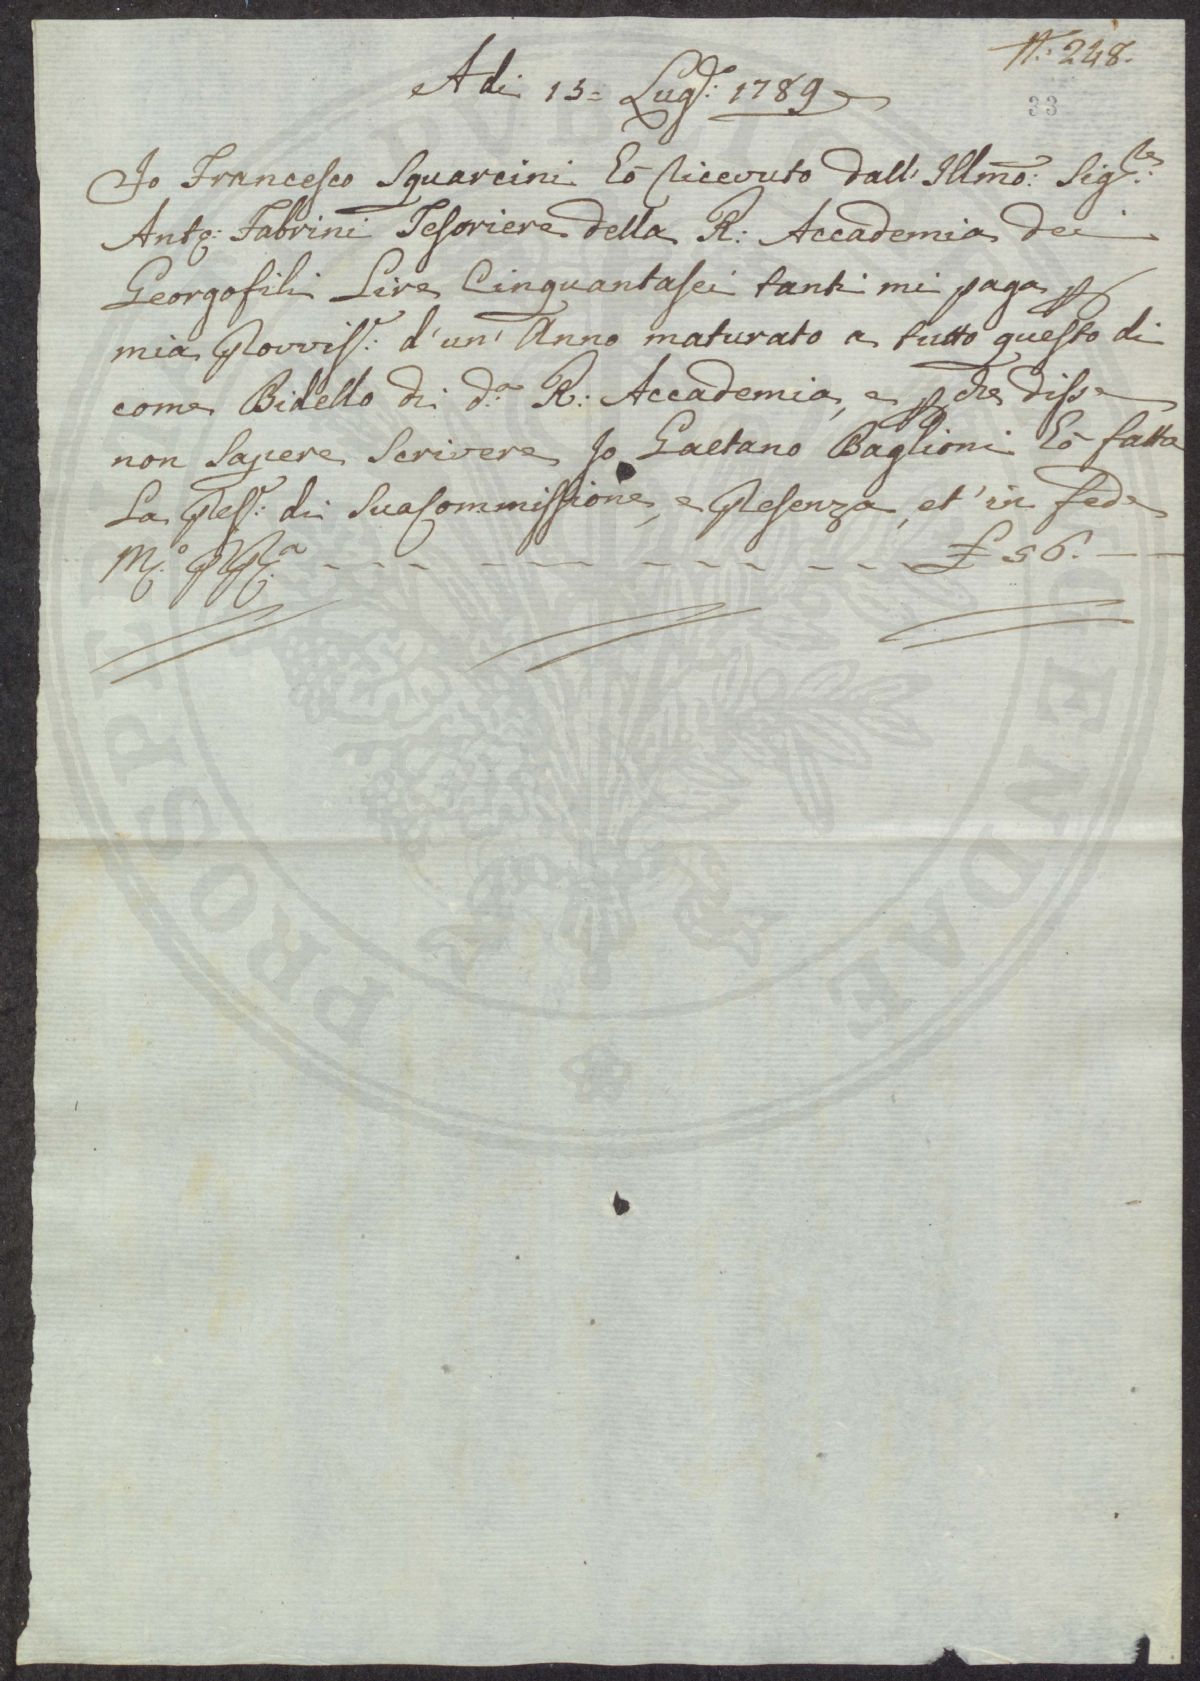 N.: 248.
33
A di 15= Lug.o: 1789
Io Francesco Squarcini ho ricevuto dall' Illmo: Sig.re:
Anto: Fabrini Tesoriere della R: Accademia dei
Georgofili Lire Cinquantasei tanti mi paga p
mia Provvis.e: d'un' Anno maturato a tutto questo di
come Bidello di d.a R: Accademia, e p che disse
non sapere scrivere Io Gaetano Baglioni ho fatta
La pres.e: di sua commissione, e presenza, et' in fede
M.o P.P.a £ 56. — —
PROSPERITATI PUBLICAE AUGENDAE